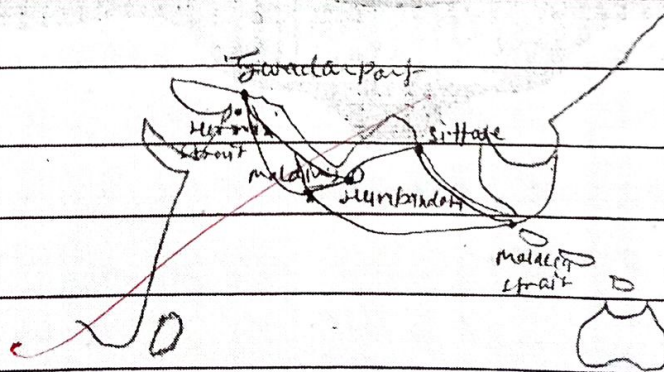 Gwadar port
Hormuz
strait
sittwe
maldives
malacca
strait